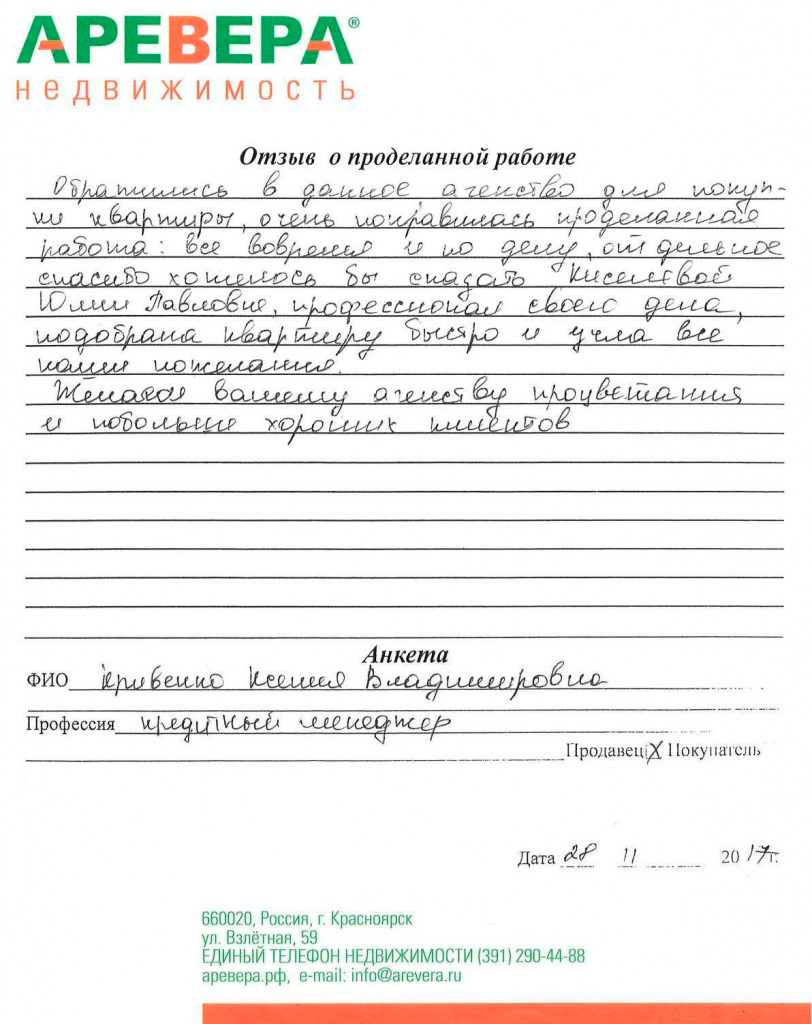 АРЕВЕРА®
НЕДВИЖИМОСТЬ
Отзыв о проделанной работе
Обратились в данное агенство для покуп-
ки квартиры, очень понравилась проделанная
работа: все вовремя и по делу, отдельное
спасибо хотелось бы сказать Киселевой
Юлии Павловне, профессионал своего дела,
подобрала квартиру быстро и учла все
наши пожелания.
Желаем вашему агенству процветания
и побольше хороших клиентов
Анкета
ФИО Кривенко Ксения Владимировна
Профессия кредитный менеджер
Продавец X Покупатель
Дата 28 11 2017г.
660020, Россия, г. Красноярск
ул. Взлётная, 59
ЕДИНЫЙ ТЕЛЕФОН НЕДВИЖИМОСТИ (391) 290-44-88
аревера.рф, e-mail: info@arevera.ru